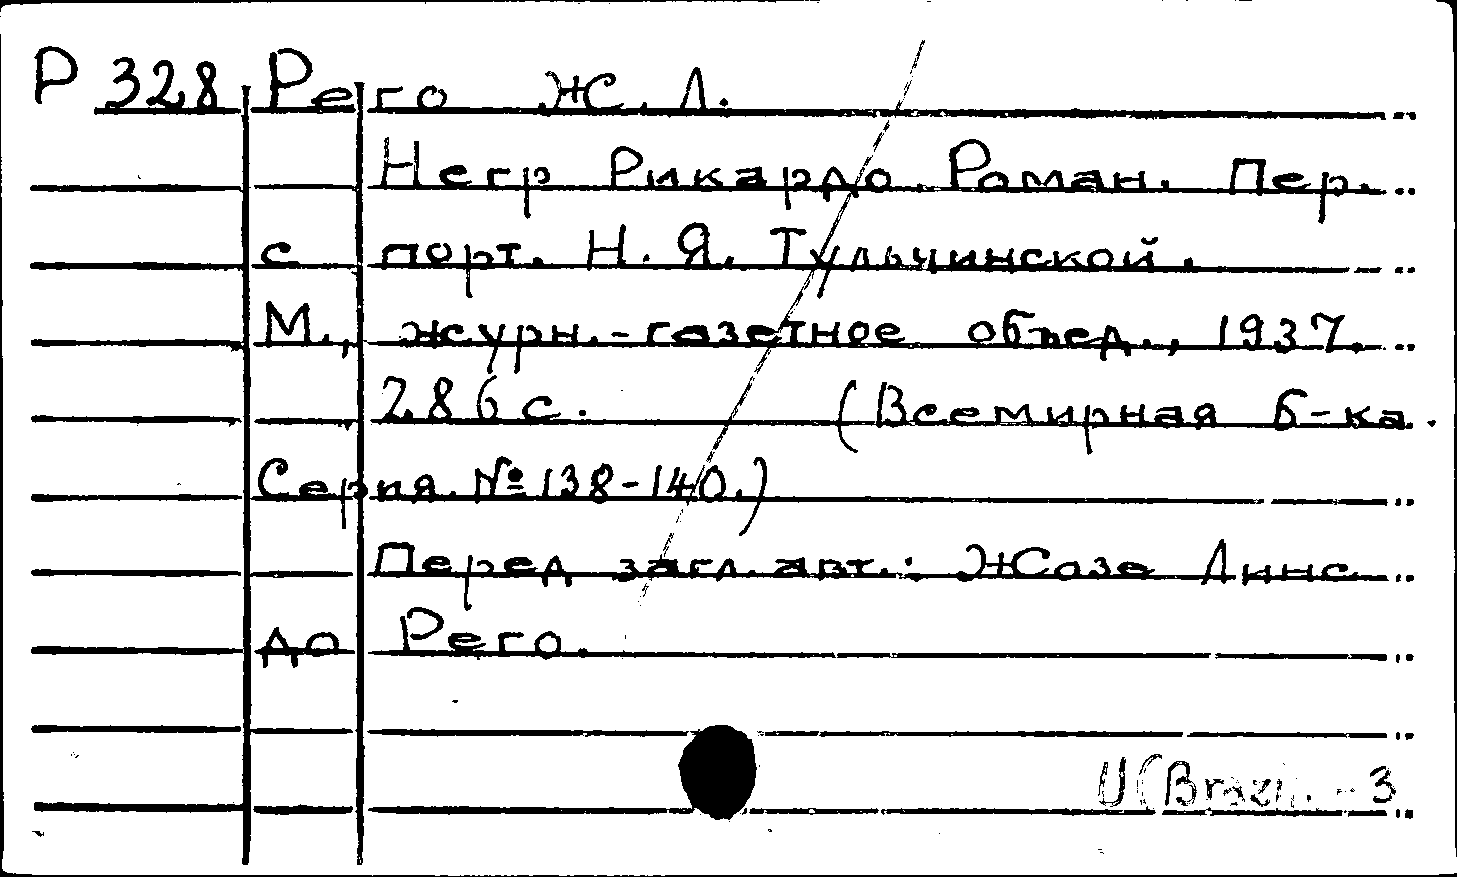 Р 328 Рего Ж. Л.
Негр Рикардо. Роман. Пер.
с порт. Н. Я. Тульчинской.
М., журн.-газетное объед., 1937.
286 с. (Всемирная б-ка.
Серия. № 138-140.)
Перед загл. авт.: Жозе Линс
до Рего.
И(Brazil. - 3